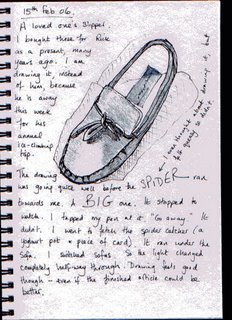 15th Feb 06.
A loved one's slipper.
I bought these for
as a present, many
years ago. I am
drawing it, instead
of him, because
he is away
this week
for his
annual
ice-climbing
trip.
I even thought about drawing it, but
felt guilty so didn't.
The drawing
was going quite well before the SPIDER ran
towards me. A BIG one. It stopped to
watch. I tapped my pen at it "Go away" It
didn't. I went to fetch the spider catcher (a
yoghurt pot + piece of card). It ran under the
sofa. I switched sofas. So the light changed
completely half-way through. Drawing feels good
though - even if the finished article could be
better.